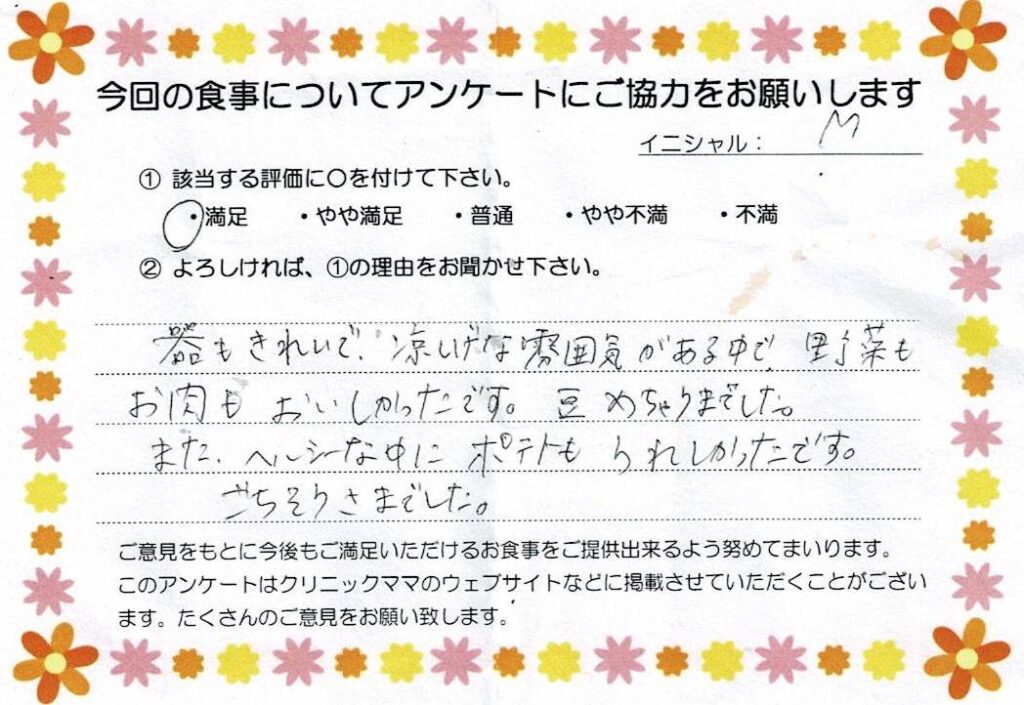 今回の食事についてアンケートにご協力をお願いします
イニシャル： M
① 該当する評価に〇を付けて下さい。
・満足 ・やや満足 ・普通 ・やや不満 ・不満
② よろしければ、①の理由をお聞かせ下さい。
器もきれいで、涼しげな雰囲気がある中で、野菜も
お肉も おいしかったです。豆 めちゃうまでした。
また、ヘルシーな中に ポテトも うれしかったです。
ごちそうさまでした。
ご意見をもとに今後もご満足いただけるお食事をご提供出来るよう努めてまいります。
このアンケートはクリニックママのウェブサイトなどに掲載させていただくことがござい
ます。たくさんのご意見をお願い致します。